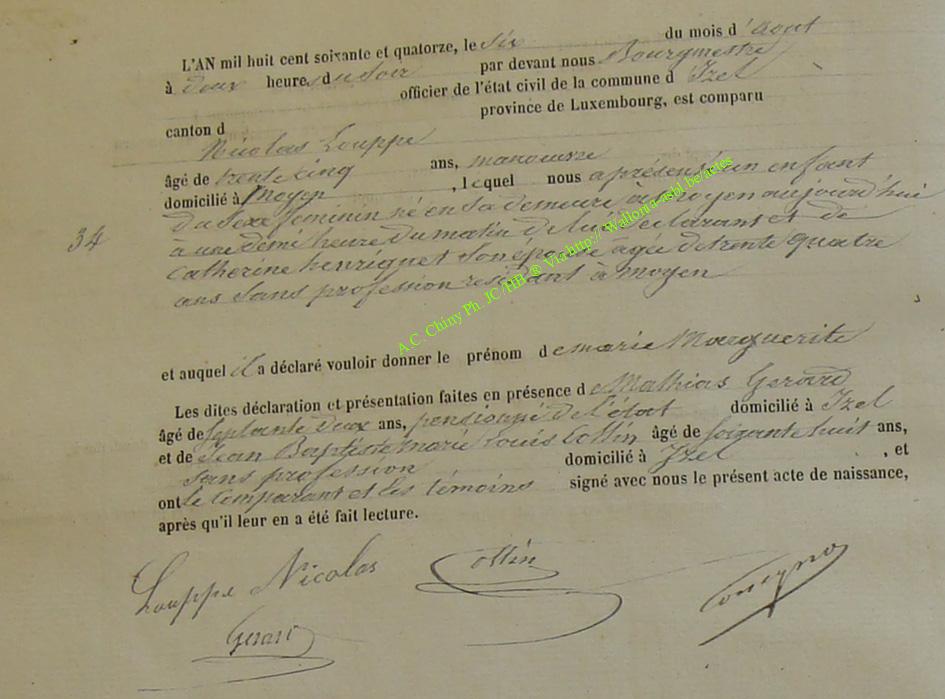 L'AN mil huit cent soixante et quatorze, le six du mois d'août
à deux heures du soir par devant nous Bourgmestre
officier de l'état civil de la commune d'Izel
canton d province de Luxembourg, est comparu
Nicolas Louppe
âgé de trente cinq ans, manoeuvre
domicilié à Moyen , lequel nous a présenté un enfant
du sexe feminin né en sa demeure à Moyen aujourd'hui
34 à une demi heure du matin de lui déclarant et de
Catherine henriquet son épouse agée de trente quatre
ans sans profession résidant à moyen
et auquel il a déclaré vouloir donner le prénom de marie Marguerite
Les dites déclaration et présentation faites en présence de Mathias Gerard
âgé de septante deux ans, pensionné de l'état domicilié à Izel
et de Jean Baptiste marie Louis Collin âgé de soixante huit ans,
sans profession domicilié à Izel , et
ont le comparant et les témoins signé avec nous le présent acte de naissance,
après qu'il leur en a été fait lecture.
Louppe Nicolas Collin
Gerard
A.C. Chiny Ph. JC/HB ® Via http://Wallonia-asbl.be/actes